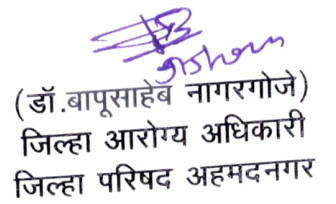 (डॉ.बापूसाहेब नागरगोजे)
जिल्हा आरोग्य अधिकारी
जिल्हा परिषद अहमदनगर